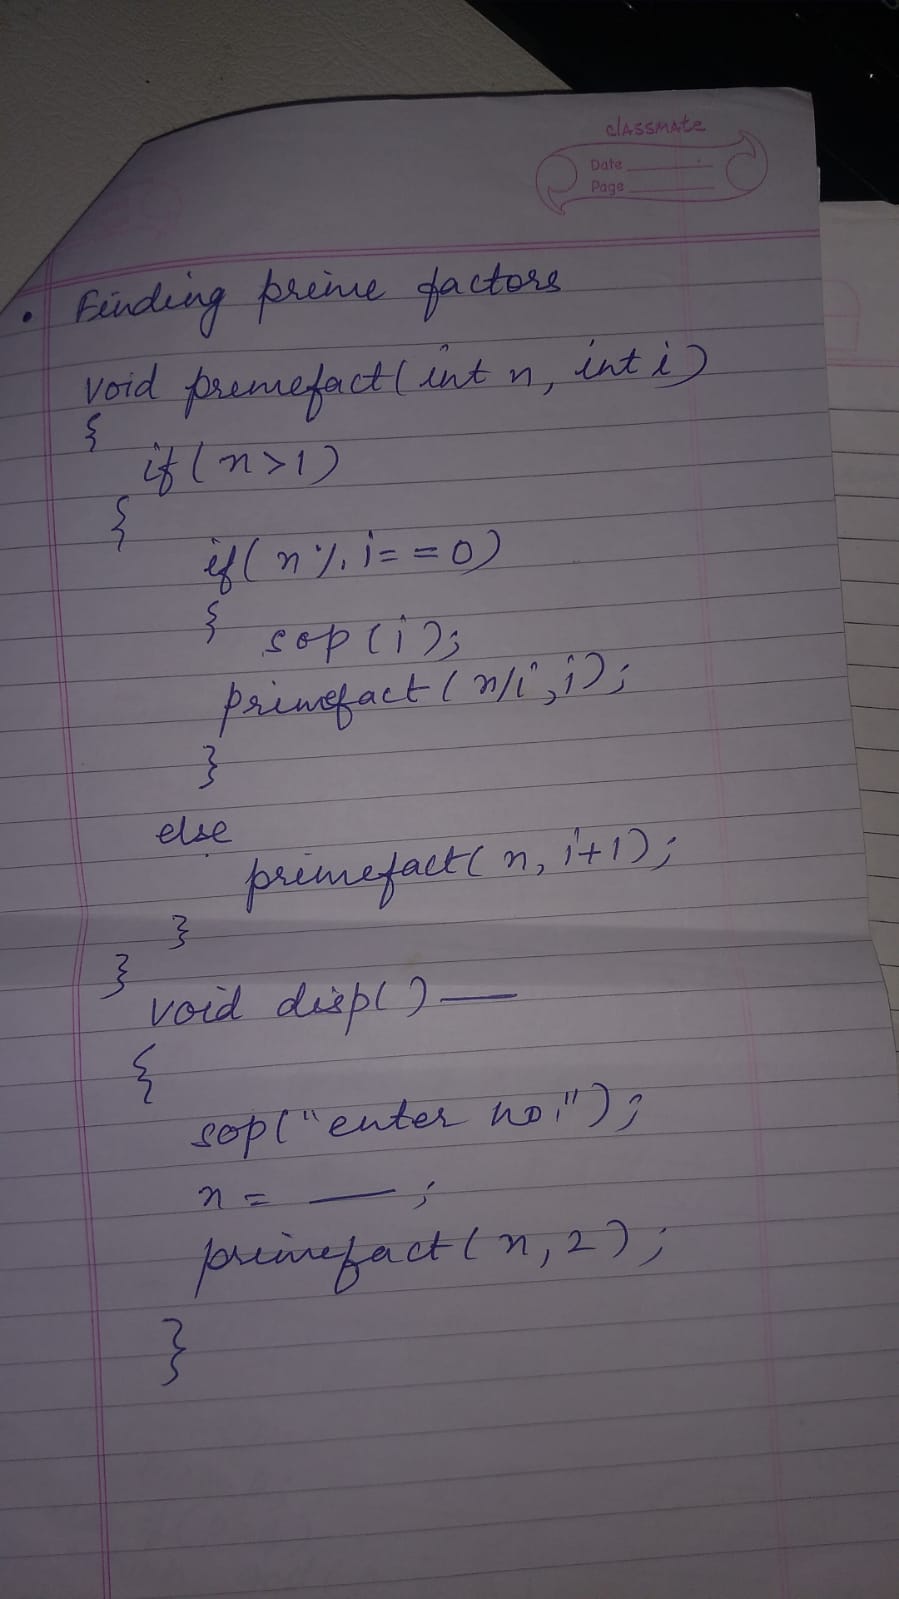 classmate
Date
Page
• Finding prime factors
void primefact(int n, int i)
{
if(n>1)
{
if(n%i==0)
{ sop(i);
primefact(n/i,i);
}
else
primefact(n, i+1);
}
}
void disp()—
{
sop("enter no.");
n = — ;
primefact(n,2);
}